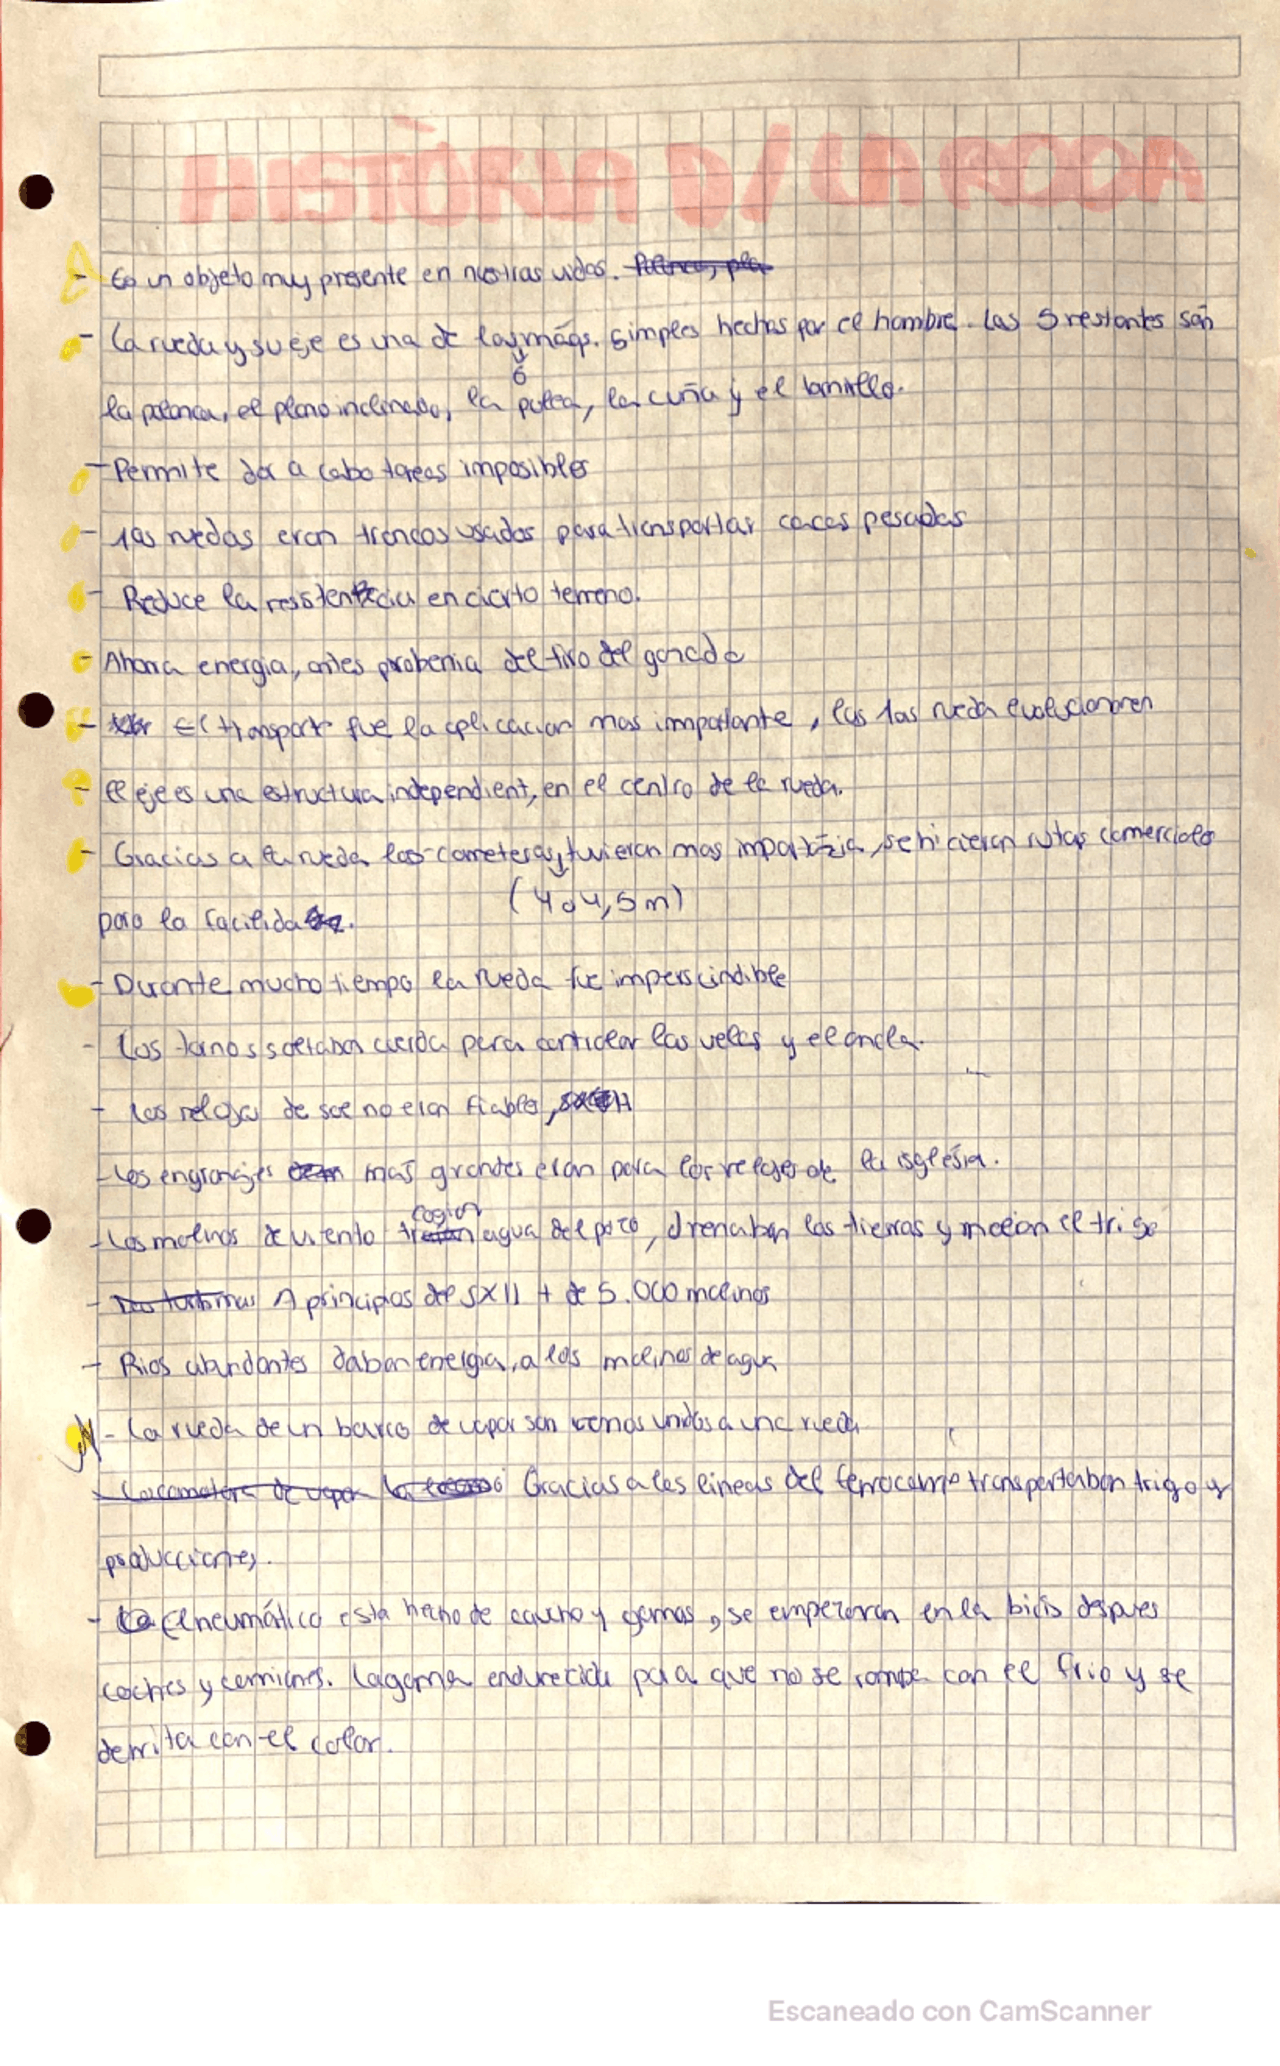 HISTÒRIA D/ LA RODA
- Es un objeto muy presente en nuestras vidas. Palanca, pla
- La rueda y su eje es una de las máqs. simples hechas por el hombre. Las 5 restantes són
6
la palanca, el plano inclinado, la polea, la cuña y el tornillo.
- Permite dar a cabo tareas imposibles
- 1as ruedas eran troncos usados para transportar cosas pesadas
- Reduce la resistencia en cierto terreno.
- Ahora energia, antes probenia del tiro del ganado
- El transport fue la aplicacion mas importante, las 1as rueda evolucionaron
- El eje es una estructura independient, en el centro de la rueda.
- Gracias a la rueda las carreteras tuvieron mas importància, se hicieron rutas comerciales
(4 o 4,5 m)
para la facilida
- Durante mucho tiempo la rueda fue imperscindible
- Los tornos soltaban cuerda para controlar las velas y el ancla.
- Los relojes de sol no eran fiables, SXIII
- Los engranajes mas grandes eran para los relojes de la iglésia.
cogian
- Los molinos de viento agua del pozo, drenaban las tierras y molian el trigo
- A principios del SXII + de 5.000 molinos
- Rios abundantes daban energia, a los molinos de agua
- La rueda de un barco de vapor son remos unidos a una rueda
- Locomotora de vapor Gracias a les lineas del ferrocarril transportaban trigo y
producciones.
- El neumático esta hecho de caucho y gomas, se empezaron en la bicis despues
coches y camiones. La goma endurecida para que no se rompa con el frio y se
derrita con el calor.
Escaneado con CamScanner